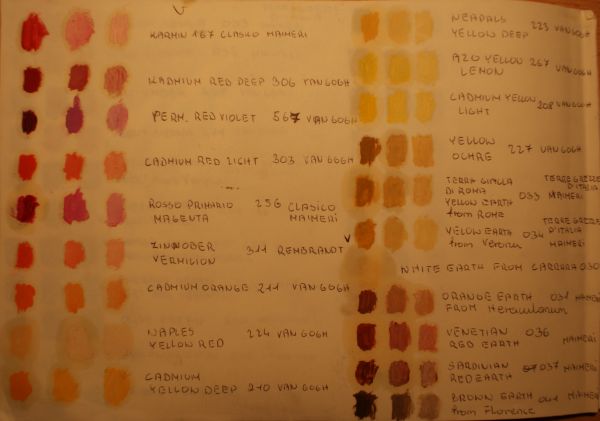 KARMIN 167 CLASICO MAIMERI
KADMIUM RED DEEP 306 VAN GOGH
PERM. RED VIOLET 567 VAN GOGH
CADMIUM RED LIGHT 303 VAN GOGH
ROSSO PRIMARIO 256 CLASICO
MAGENTA MAIMERI
ZINNOBER 311 REMBRANDT
VERMILION
CADMIUM ORANGE 211 VAN GOGH
NAPLES 224 VAN GOGH
YELLOW RED
CADMIUM
YELLOW DEEP 210 VAN GOGH
NEAPALS 223 VAN GOGH
YELLOW DEEP
AZO YELLOW 267 VAN GOGH
LEMON
CADMIUM YELLOW
LIGHT 208 VAN GOGH
YELLOW
OCHRE 227 VAN GOGH
TERRA GIALLA TERRE GREZZE
DI ROMA D'ITALIA
YELLOW EARTH 033 MAIMERI
from ROME
TERRE GREZZE
YELOW EARTH 034 D'ITALIA
from Verona MAIMERI
WHITE EARTH FROM CARRARA 030
ORANGE EARTH 031 MAIMERI
FROM Herculanum
VENETIAN 036
RED EARTH MAIMERI
SARDINIAN 037 MAIMERI
RED EARTH
BROWN EARTH 041 MAIMERI
from Florence